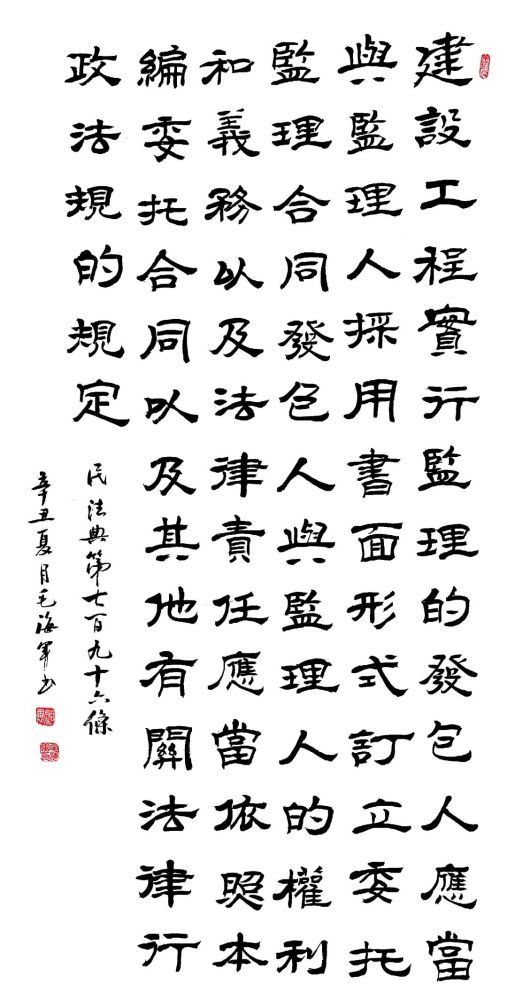 建設工程實行監理的發包人應當
與監理人採用書面形式訂立委托
監理合同發包人與監理人的權利
和義務以及法律責任應當依照本
編委托合同以及其他有關法律行
政法規的規定
民法典第七百九十六條
辛丑夏月毛海軍书